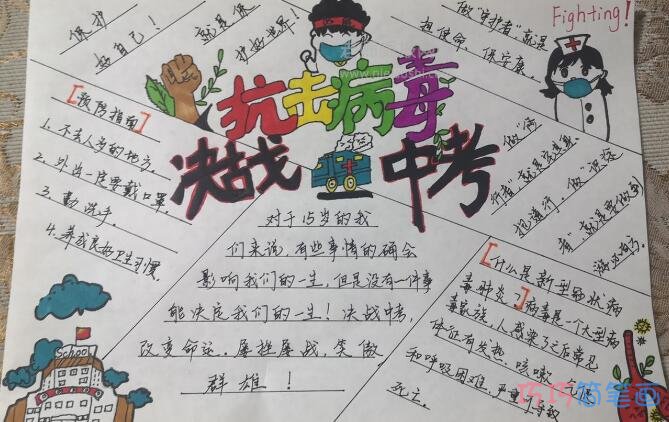 保护
好自己！
就是保
护好世界！
做“守护者”就是
担使命、保安康。
Fighting!
抗击病毒
决战
中考
[预防指南]
1.不去人多的地方。
2.外出一定要戴口罩。
3.勤洗手。
4.养成良好卫生习惯。
对于15岁的我
们来说,有些事情的确会
影响我们的一生,但是没有一件事
能决定我们的一生！决战中考,
改变命运,屡挫屡战,笑傲
群雄！
[什么是新型冠状病
毒肺炎?]病毒是一个大型病
毒家族,人感染了之后常见
体征有发热、咳嗽、气促
和呼吸困难,严重可导致
死亡。
School
巧巧简笔画